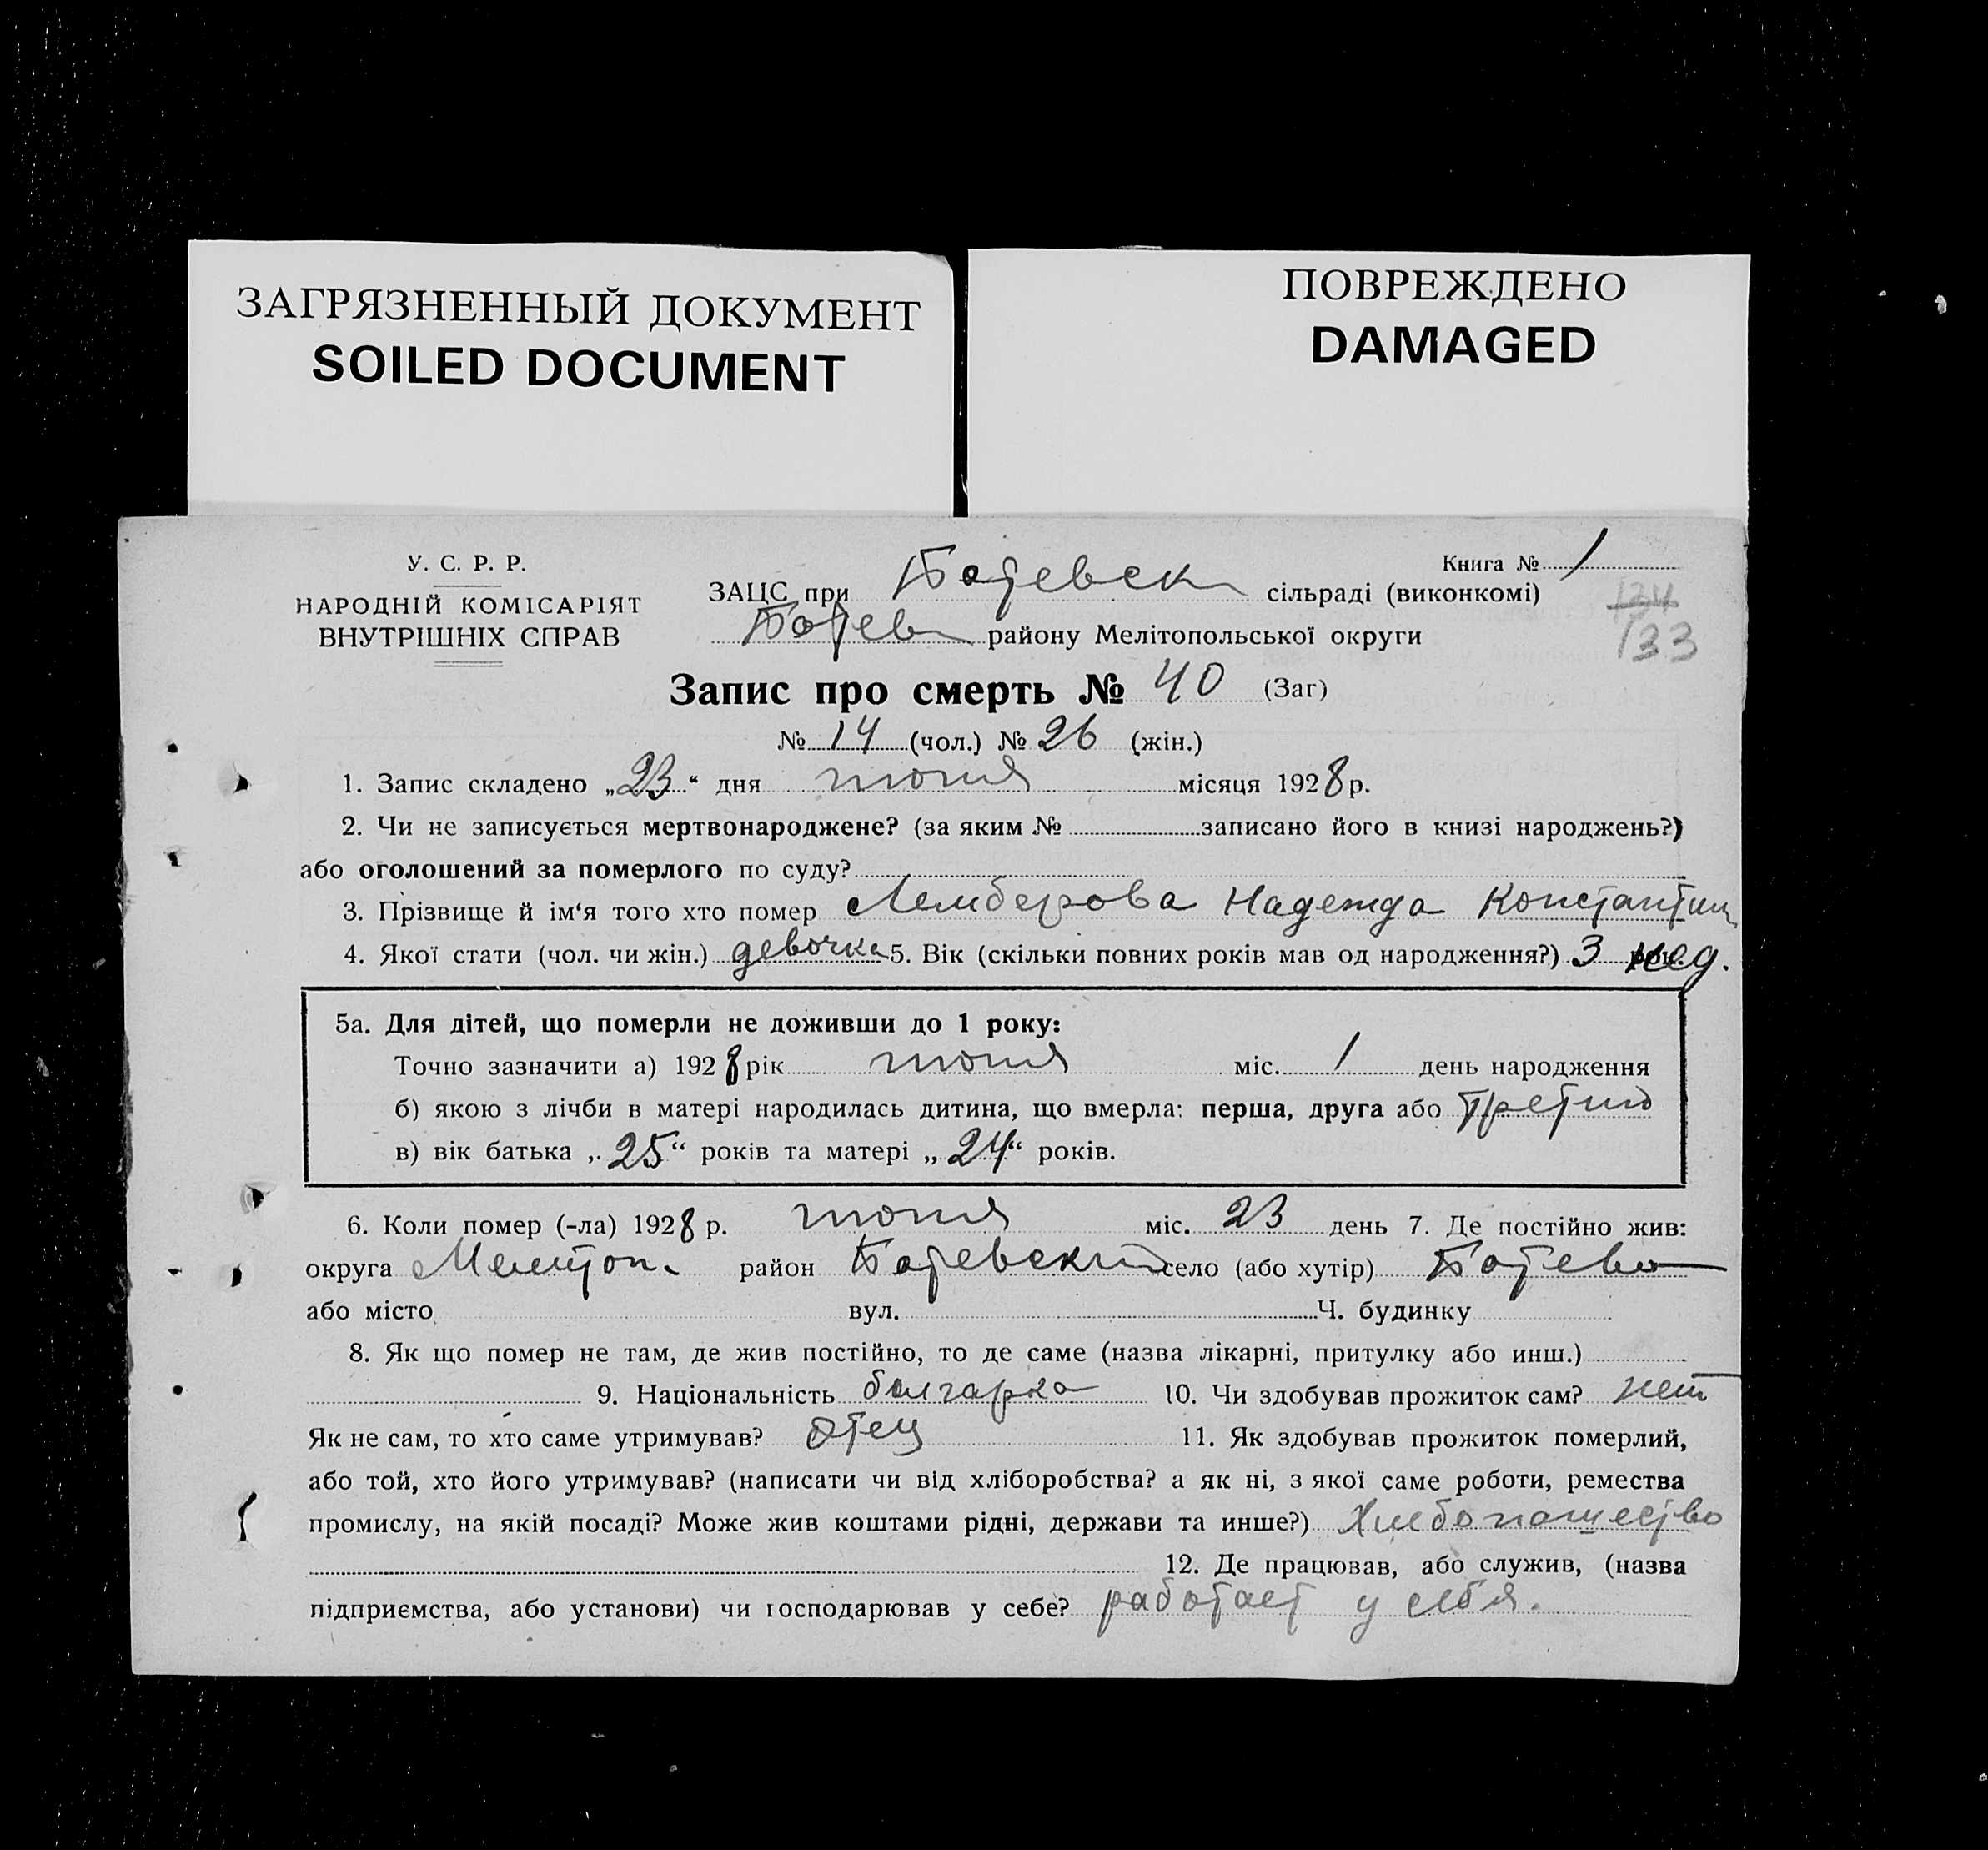 ЗАГРЯЗНЕННЫЙ ДОКУМЕНТ
SOILED DOCUMENT
ПОВРЕЖДЕНО
DAMAGED
У. С. Р. Р.
НАРОДНІЙ КОМІСАРІЯТ
ВНУТРІШНІХ СПРАВ
Книга № 1
ЗАЦС при Ботевск сільраді (виконкомі)
134
133
Ботев району Мелітопольської округи
Запис про смерть № 40 (Заг)
№ 14 (чол.) № 26 (жін.)
1. Запис складено „23“ дня июня місяця 1928 р.
2. Чи не записується мертвонароджене? (за яким № записано його в книзі народжень?)
або оголошений за померлого по суду?
3. Прізвище й ім‘я того хто помер Лемберова Надежда Константин
4. Якої стати (чол. чи жін.) девочка 5. Вік (скільки повних років мав од народження?) 3 нед.
5а. Для дітей, що померли не доживши до 1 року:
Точно зазначити а) 1928 рік июня міс. 1 день народження
б) якою з лічби в матері народилась дитина, що вмерла: перша, друга або третью
в) вік батька „25“ років та матері „24“ років.
6. Коли помер (-ла) 1928 р. июня міс. 23 день 7. Де постійно жив:
округа Мелитоп. район Ботевский село (або хутір) Ботево
або місто вул. Ч. будинку
8. Як що помер не там, де жив постійно, то де саме (назва лікарні, притулку або инш.)
9. Національність болгарка 10. Чи здобував прожиток сам? нет
Як не сам, то хто саме утримував? Отец 11. Як здобував прожиток померлий,
або той, хто його утримував? (написати чи від хліборобства? а як ні, з якої саме роботи, ремества
промислу, на якій посаді? Може жив коштами рідні, держави та инше?) Хлебопашество
12. Де працював, або служив, (назва
підприємства, або установи) чи господарював у себе? работает у себя.